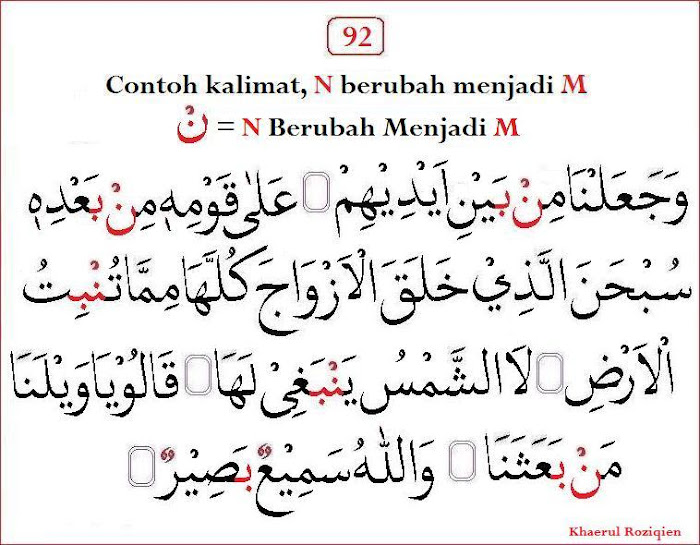 92
Contoh kalimat, N berubah menjadi M
نْ = N Berubah Menjadi M
وَجَعَلْنَا مِنْ بَيْنِ اَيْدِيْهِمْ ۝ عَلٰى قَوْمِهٖ مِنْ بَعْدِهٖ
سُبْحَنَ الَّذِيْ خَلَقَ الْاَزْوَاجَ كُلَّهَا مِمَّا تُنْبِتُ
الْاَرْضِ ۝ لَا الشَّمْسُ يَنْبَغِىْ لَهَا ۝ قَالُوْ يَا وَيْلَنَا
مَنْ بَعَثَنَا ۝ وَاللهُ سَمِيْعٌ بَصِيْرٌ ۝
Khaerul Roziqien